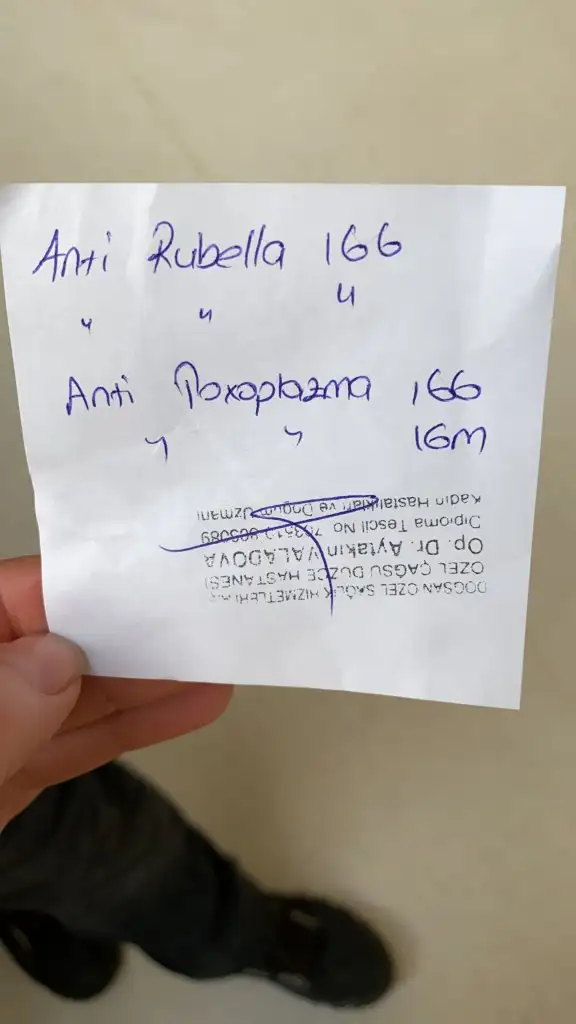 Anti Rubella IGG
" " "
Anti Toxoplazma IGG
" " IGM
DOĞSAN ÖZEL SAĞLIK HİZMETLERİ A.Ş.
ÖZEL ÇAĞSU DÜZCE HASTANESİ
Op. Dr. Aytakin VALADOVA
Diploma Tescil No
Kadın Hastalıkları ve Doğum Uzmanı